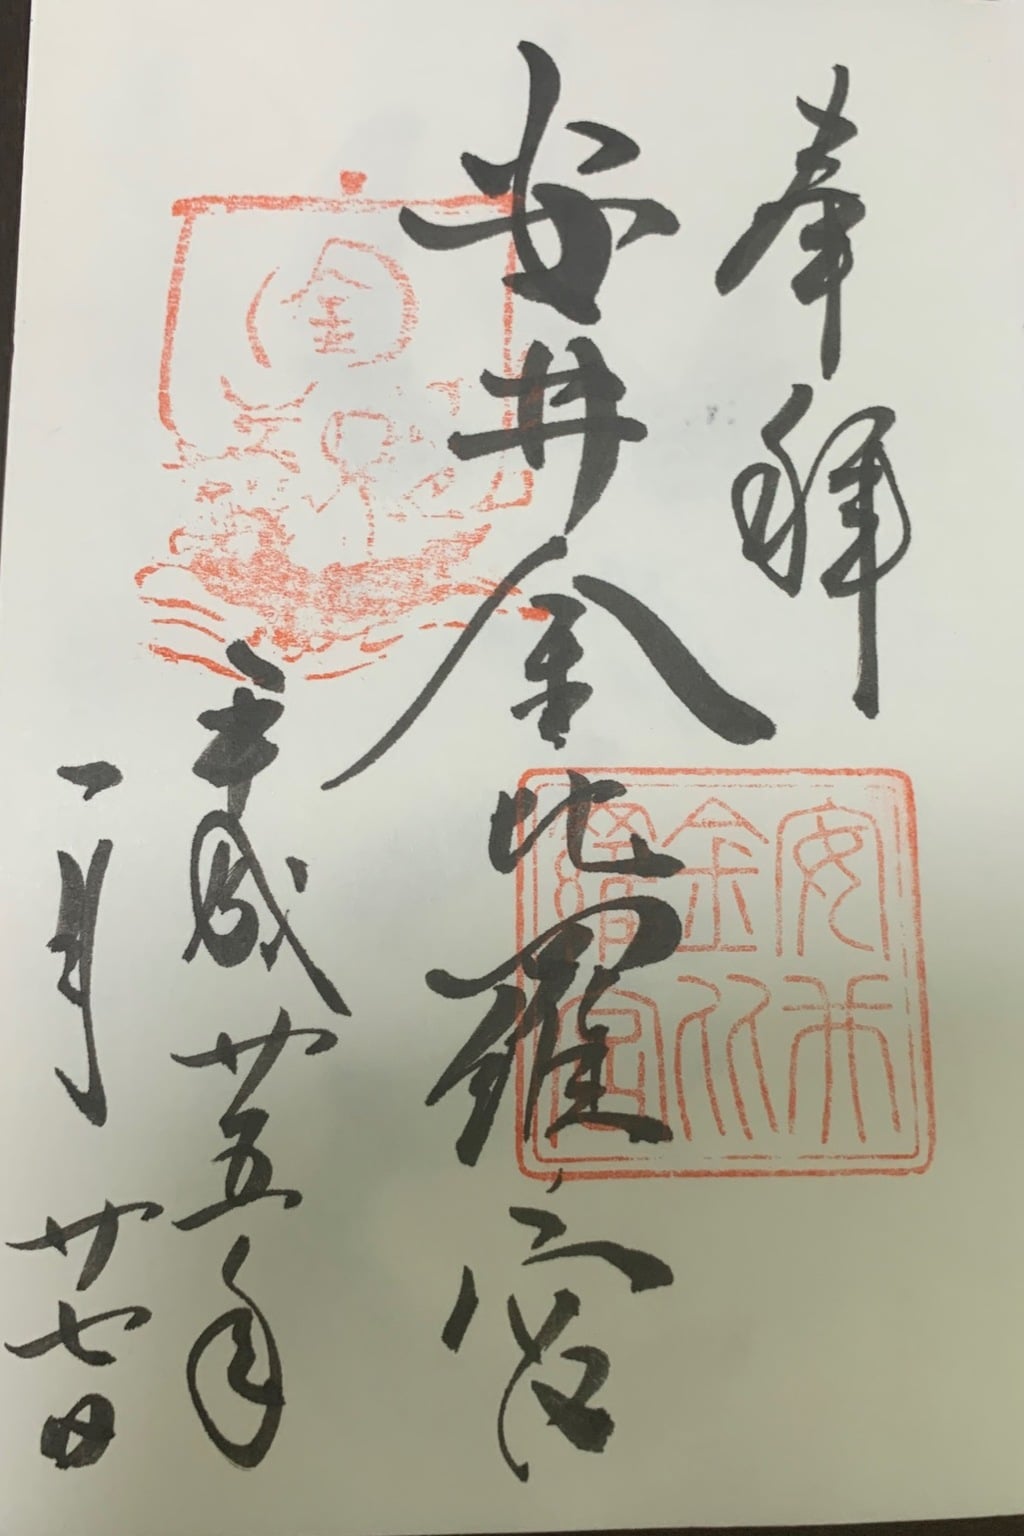 奉拝
安井金比羅宮
平成廿五年
一月廿七日
金
安井
金比
羅宮